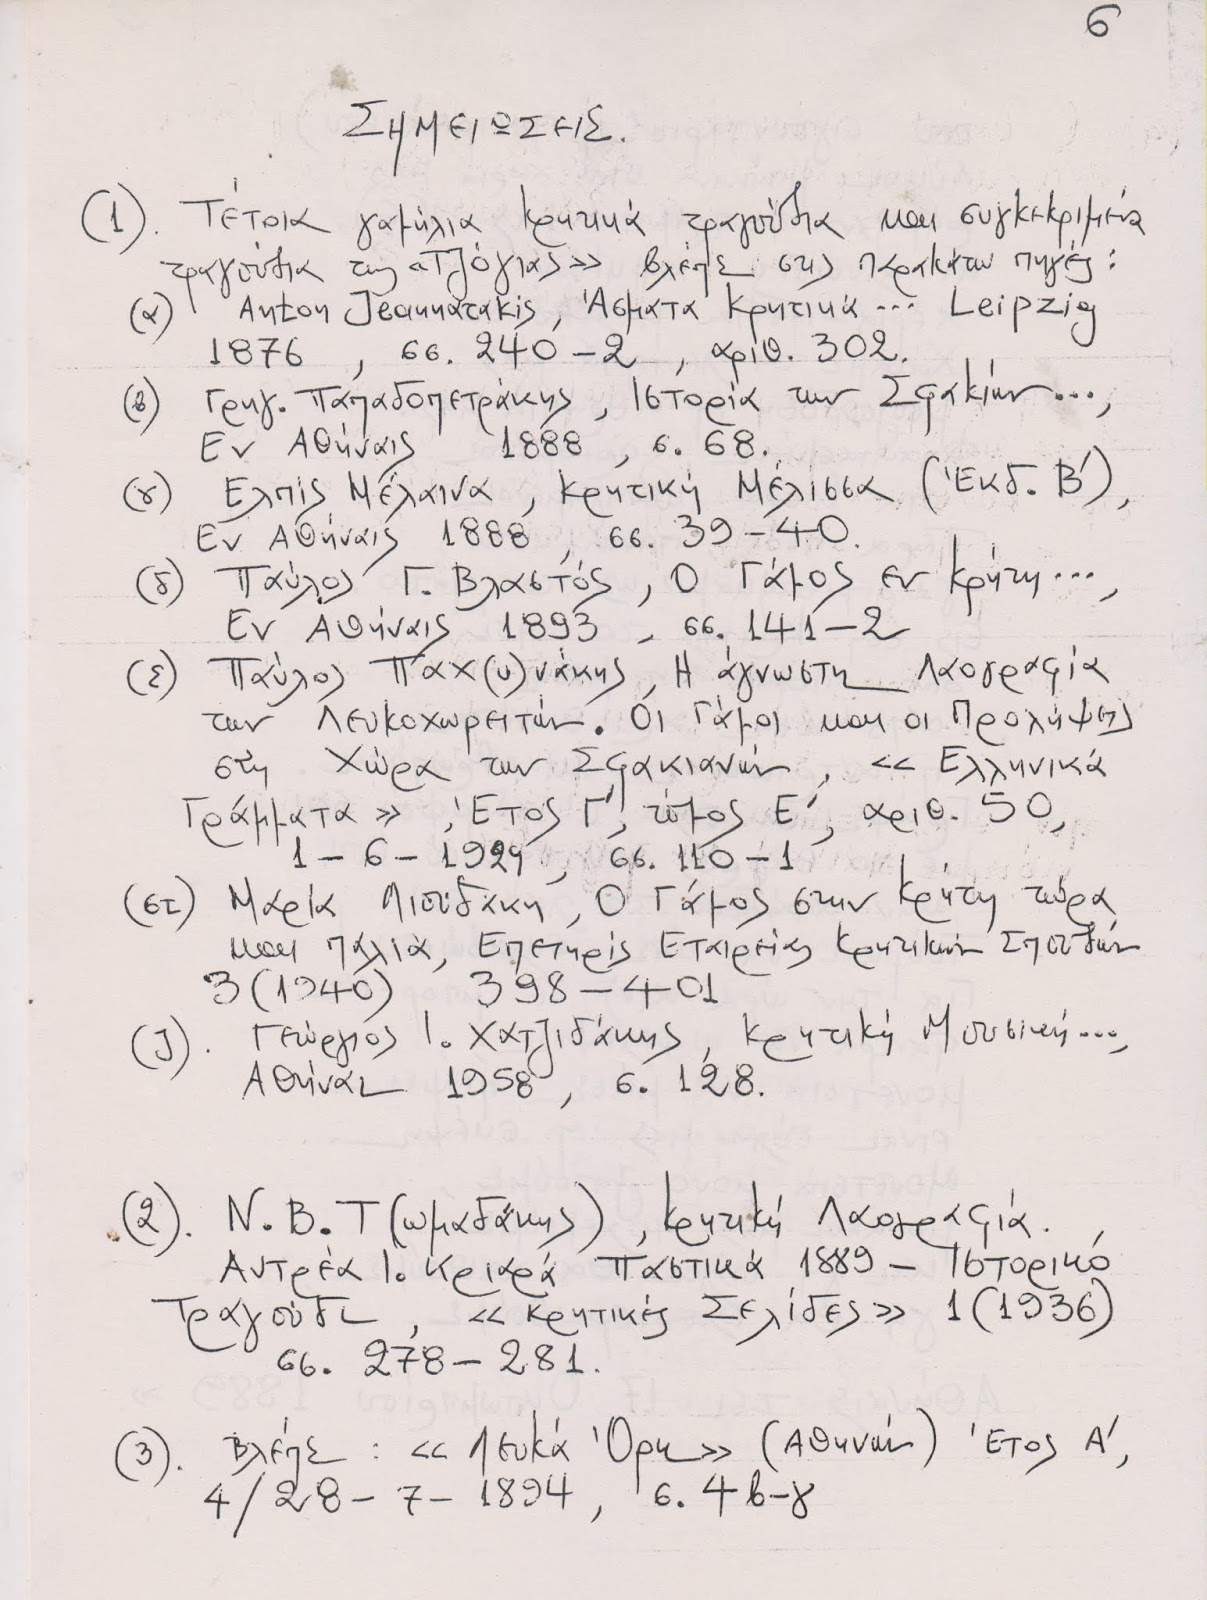 6
Σημειώσεις.
(1). Τέτοια γαμήλια κρητικά τραγούδια και συγκεκριμένα
τραγούδια της «Τζόγιας» βλέπε στις παρακάτω πηγές:
(α) Anton Jeannatakis, Άσματα Κρητικά ... Leipzig
1876, σσ. 240-2, αριθ. 302.
(β) Γρηγ. Παπαδοπετράκης, Ιστορία των Σφακίων...,
Εν Αθήναις 1888, σ. 68.
(γ) Ελπίς Μέλαινα, Κρητική Μέλισσα (Έκδ. Β'),
Εν Αθήναις 1888, σσ. 39-40.
(δ) Παύλος Γ. Βλαστός, Ο Γάμος εν Κρήτη...,
Εν Αθήναις 1893, σσ. 141-2
(ε) Παύλος Παχ(υ)νάκης, Η άγνωστη Λαογραφία
των Λευκοχωρειτών. Οι Γάμοι και οι Προλήψεις
στη Χώρα των Σφακιανών, «Ελληνικά
Γράμματα», Έτος Γ', τόμος Ε', αριθ. 50,
1-6-1929, σσ. 110-1
(στ) Μαρία Λιουδάκη, Ο Γάμος στην Κρήτη τώρα
και παλιά, Επετηρίς Εταιρείας Κρητικών Σπουδών
3 (1940) 398-401
(J). Γεώργιος Ι. Χατζιδάκης, Κρητική Μουσική...,
Αθήναι 1958, σ. 128.
(2). Ν.Β.Τ(ωμαδάκης), Κρητική Λαογραφία.
Αντρέα Ι. Κριαρά Παστικά 1889 - Ιστορικό
Τραγούδι, «Κρητικές Σελίδες» 1 (1936)
σσ. 278-281.
(3). Βλέπε: «Λευκά Όρη» (Αθηνών) Έτος Α',
4/28-7-1894, σ. 4β-γ